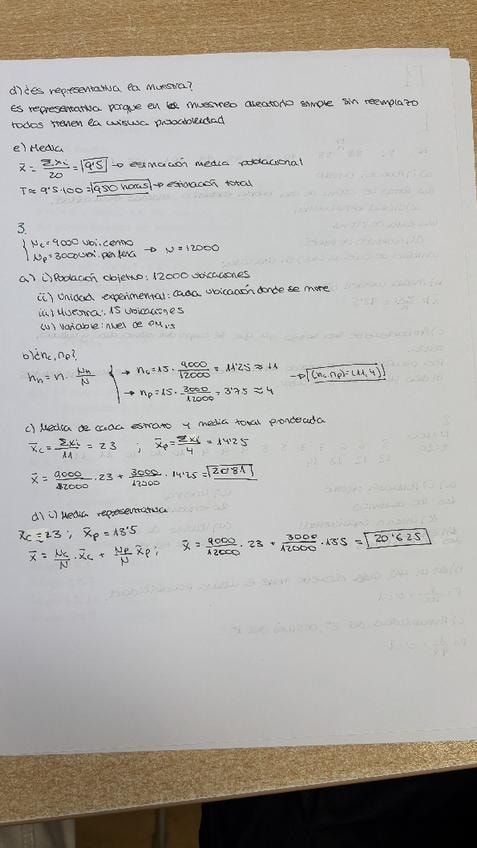 d) ¿es representativa la muestra?
Es representativa porque en el muestreo aleatorio simple sin reemplazo
todos tienen la misma probabilidad
e) Media
x̄ = Σxi/20 = 9'5 → estimación media poblacional
T ≈ 9'5·100 = 950 horas → estimación total
3.
{ Nc = 9000 ubi. centro
Np = 3000 ubi. periferia → N = 12000
a) i) Población objetivo: 12000 ubicaciones
ii) Unidad experimental: cada ubicación donde se mide
iii) Muestra: 15 ubicaciones
iv) Variable: nivel de PM2,5
b) ¿nc, np?
nh = n · Nh/N { → nc = 15 · 9000/12000 = 11'25 ≈ 11 → (nc, np) = (11, 4)
→ np = 15 · 3000/12000 = 3'75 ≈ 4
c) Media de cada estrato y media total ponderada
x̄c = Σxi/11 = 23 ; x̄p = Σxi/4 = 14'25
x̄ = 9000/12000 · 23 + 3000/12000 · 14'25 = 20'81
d) i) Media representativa
x̄c = 23 ; x̄p = 13'5
x̄ = Nc/N · x̄c + Np/N x̄p ; x̄ = 9000/12000 · 23 + 3000/12000 · 13'5 = 20'625